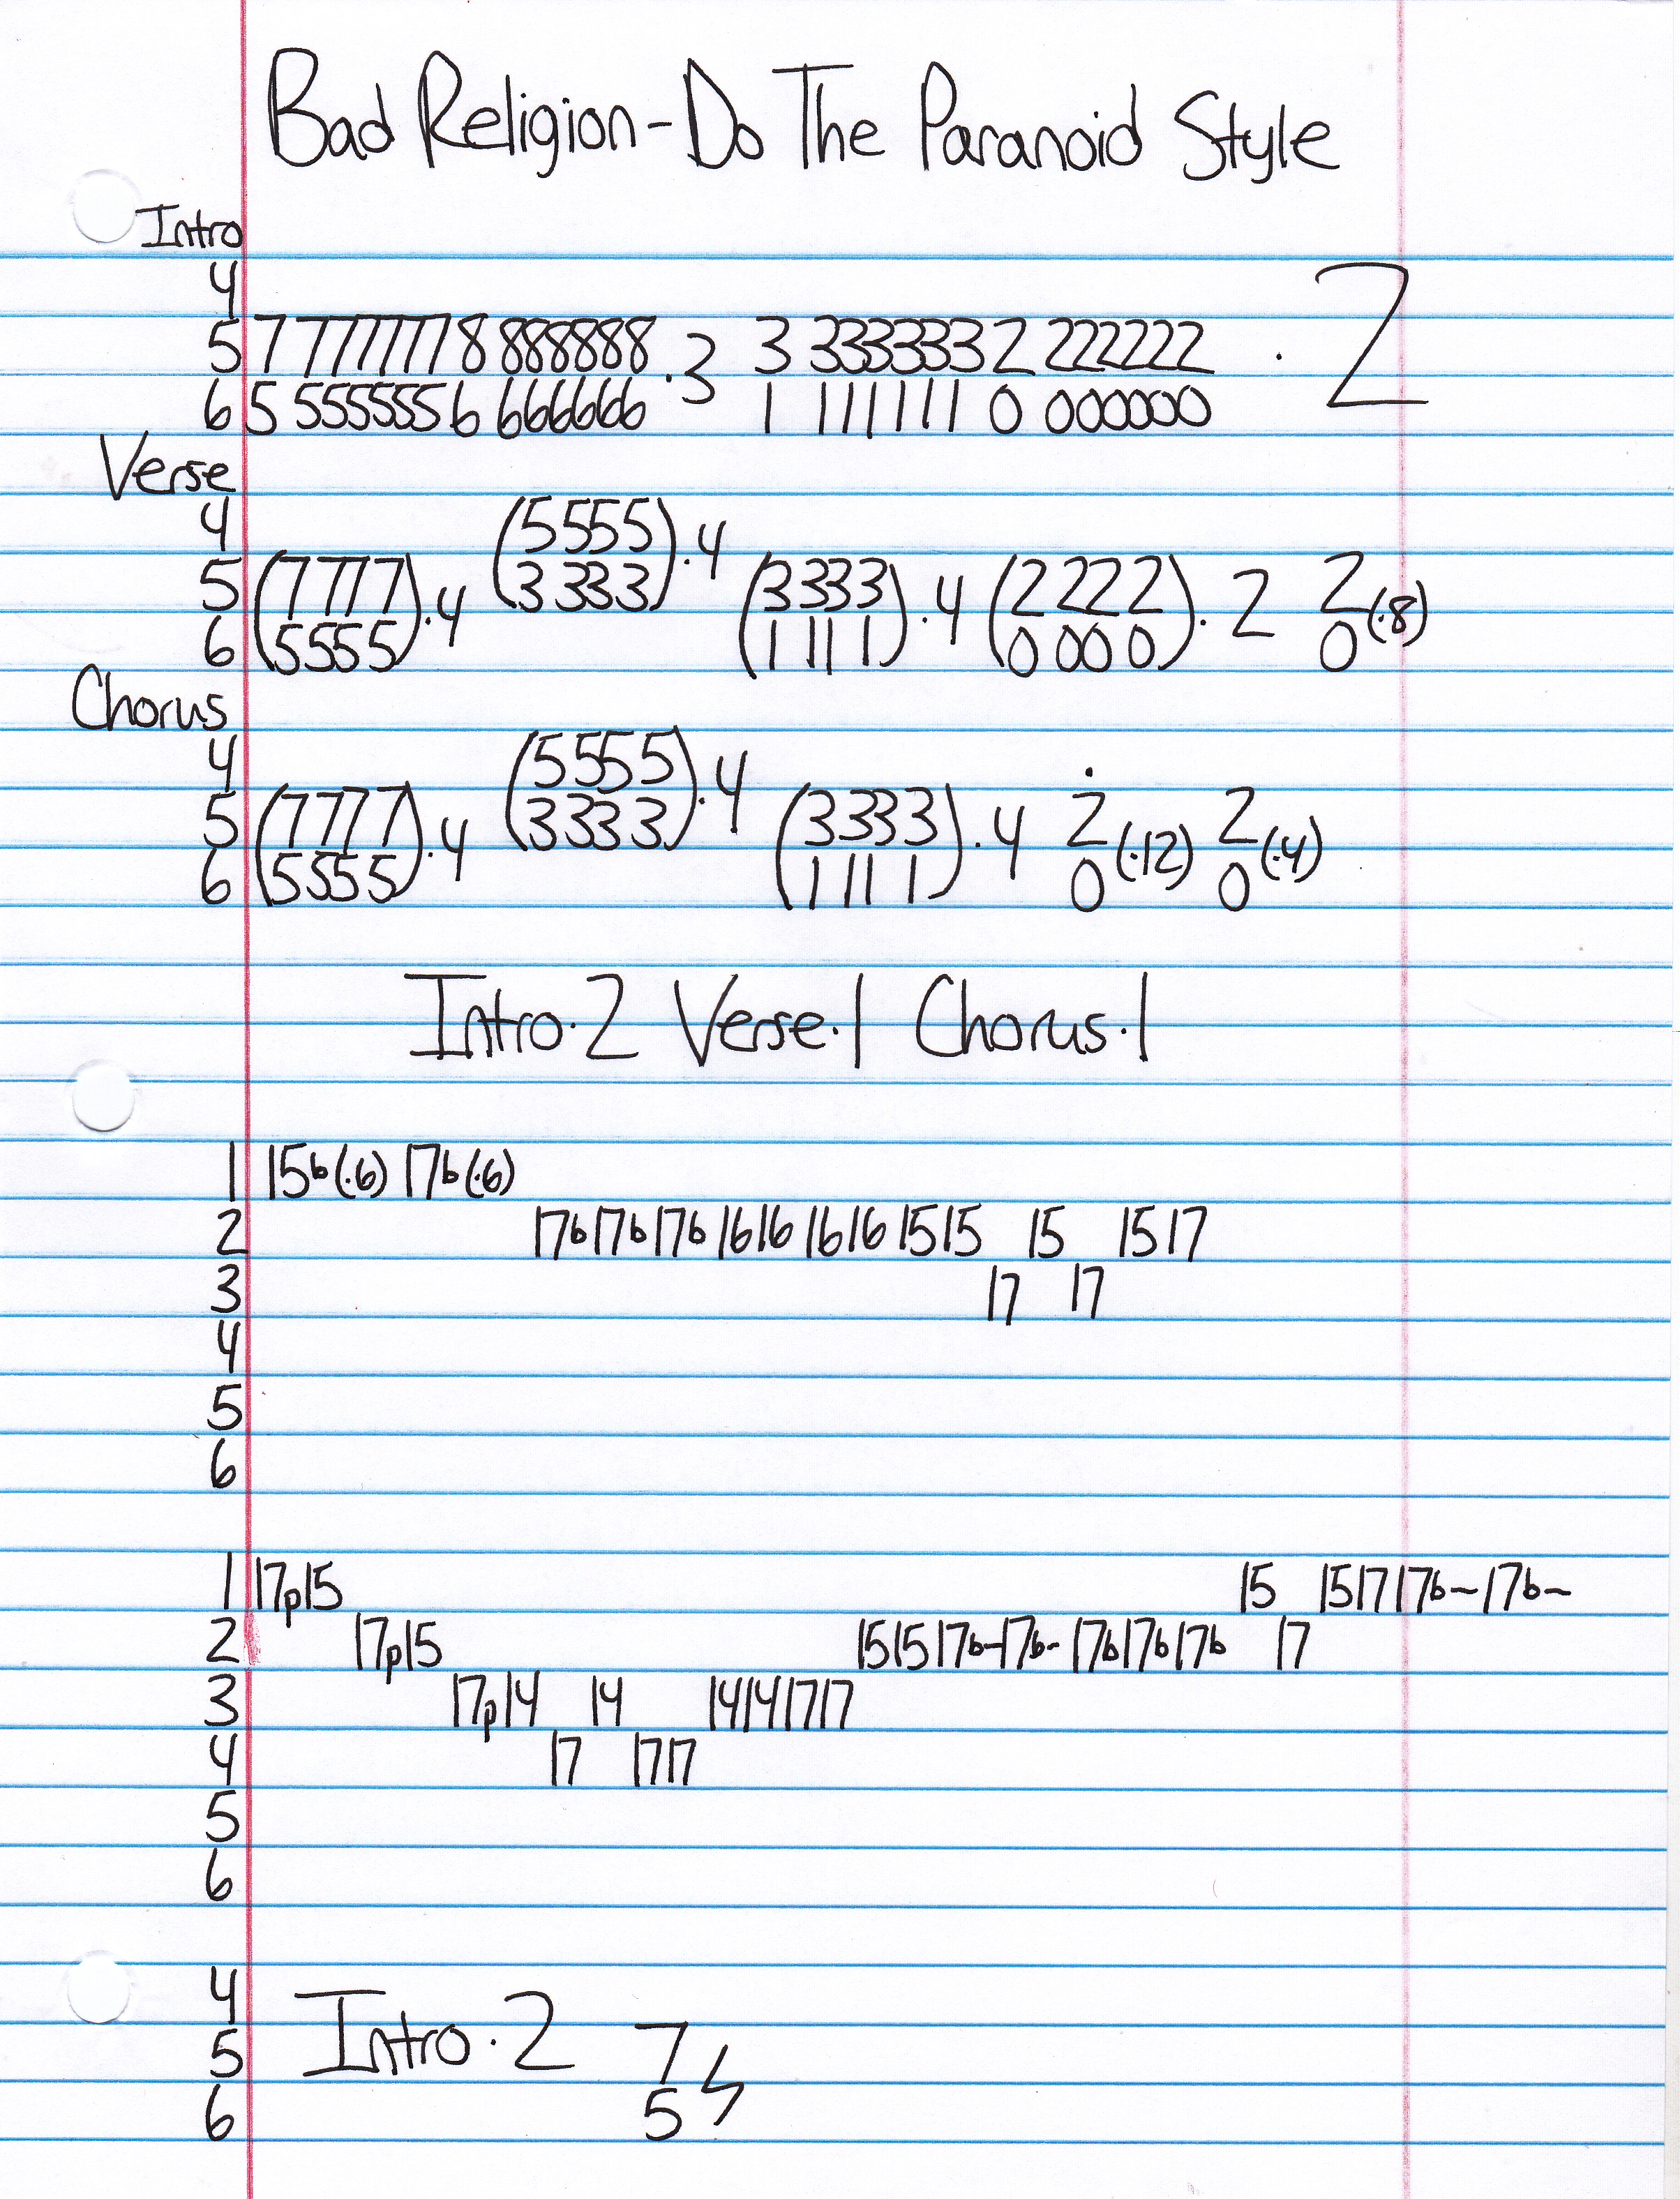 Bad Religion-Do The Paranoid Style
Intro
4
5 7 777777 8 888888 .3 3 333333 2 222222 . 2
6 5 555555 6 666666 1 111111 0 000000
Verse
4 (5555).4
5 (7777).4 3333 (3333).4 (2222).2 2(.8)
6 5555 1111 0000 0
Chorus
4 (5555).4
5 (7777).4 3333 (3333).4 2(.12) 2(.4)
6 5555 1111 0 0
Intro.2 Verse.1 Chorus.1
1 15b(.6) 17b(.6)
2 17b17b17b 1616 1616 1515 15 1517
3 17 17
4
5
6
1 17p15 15 151717b~17b~
2 17p15 151517b~17b~ 17b17b17b 17
3 17p14 14 14141717
4 17 1717
5
6
4
5 Intro.2 7
6 5